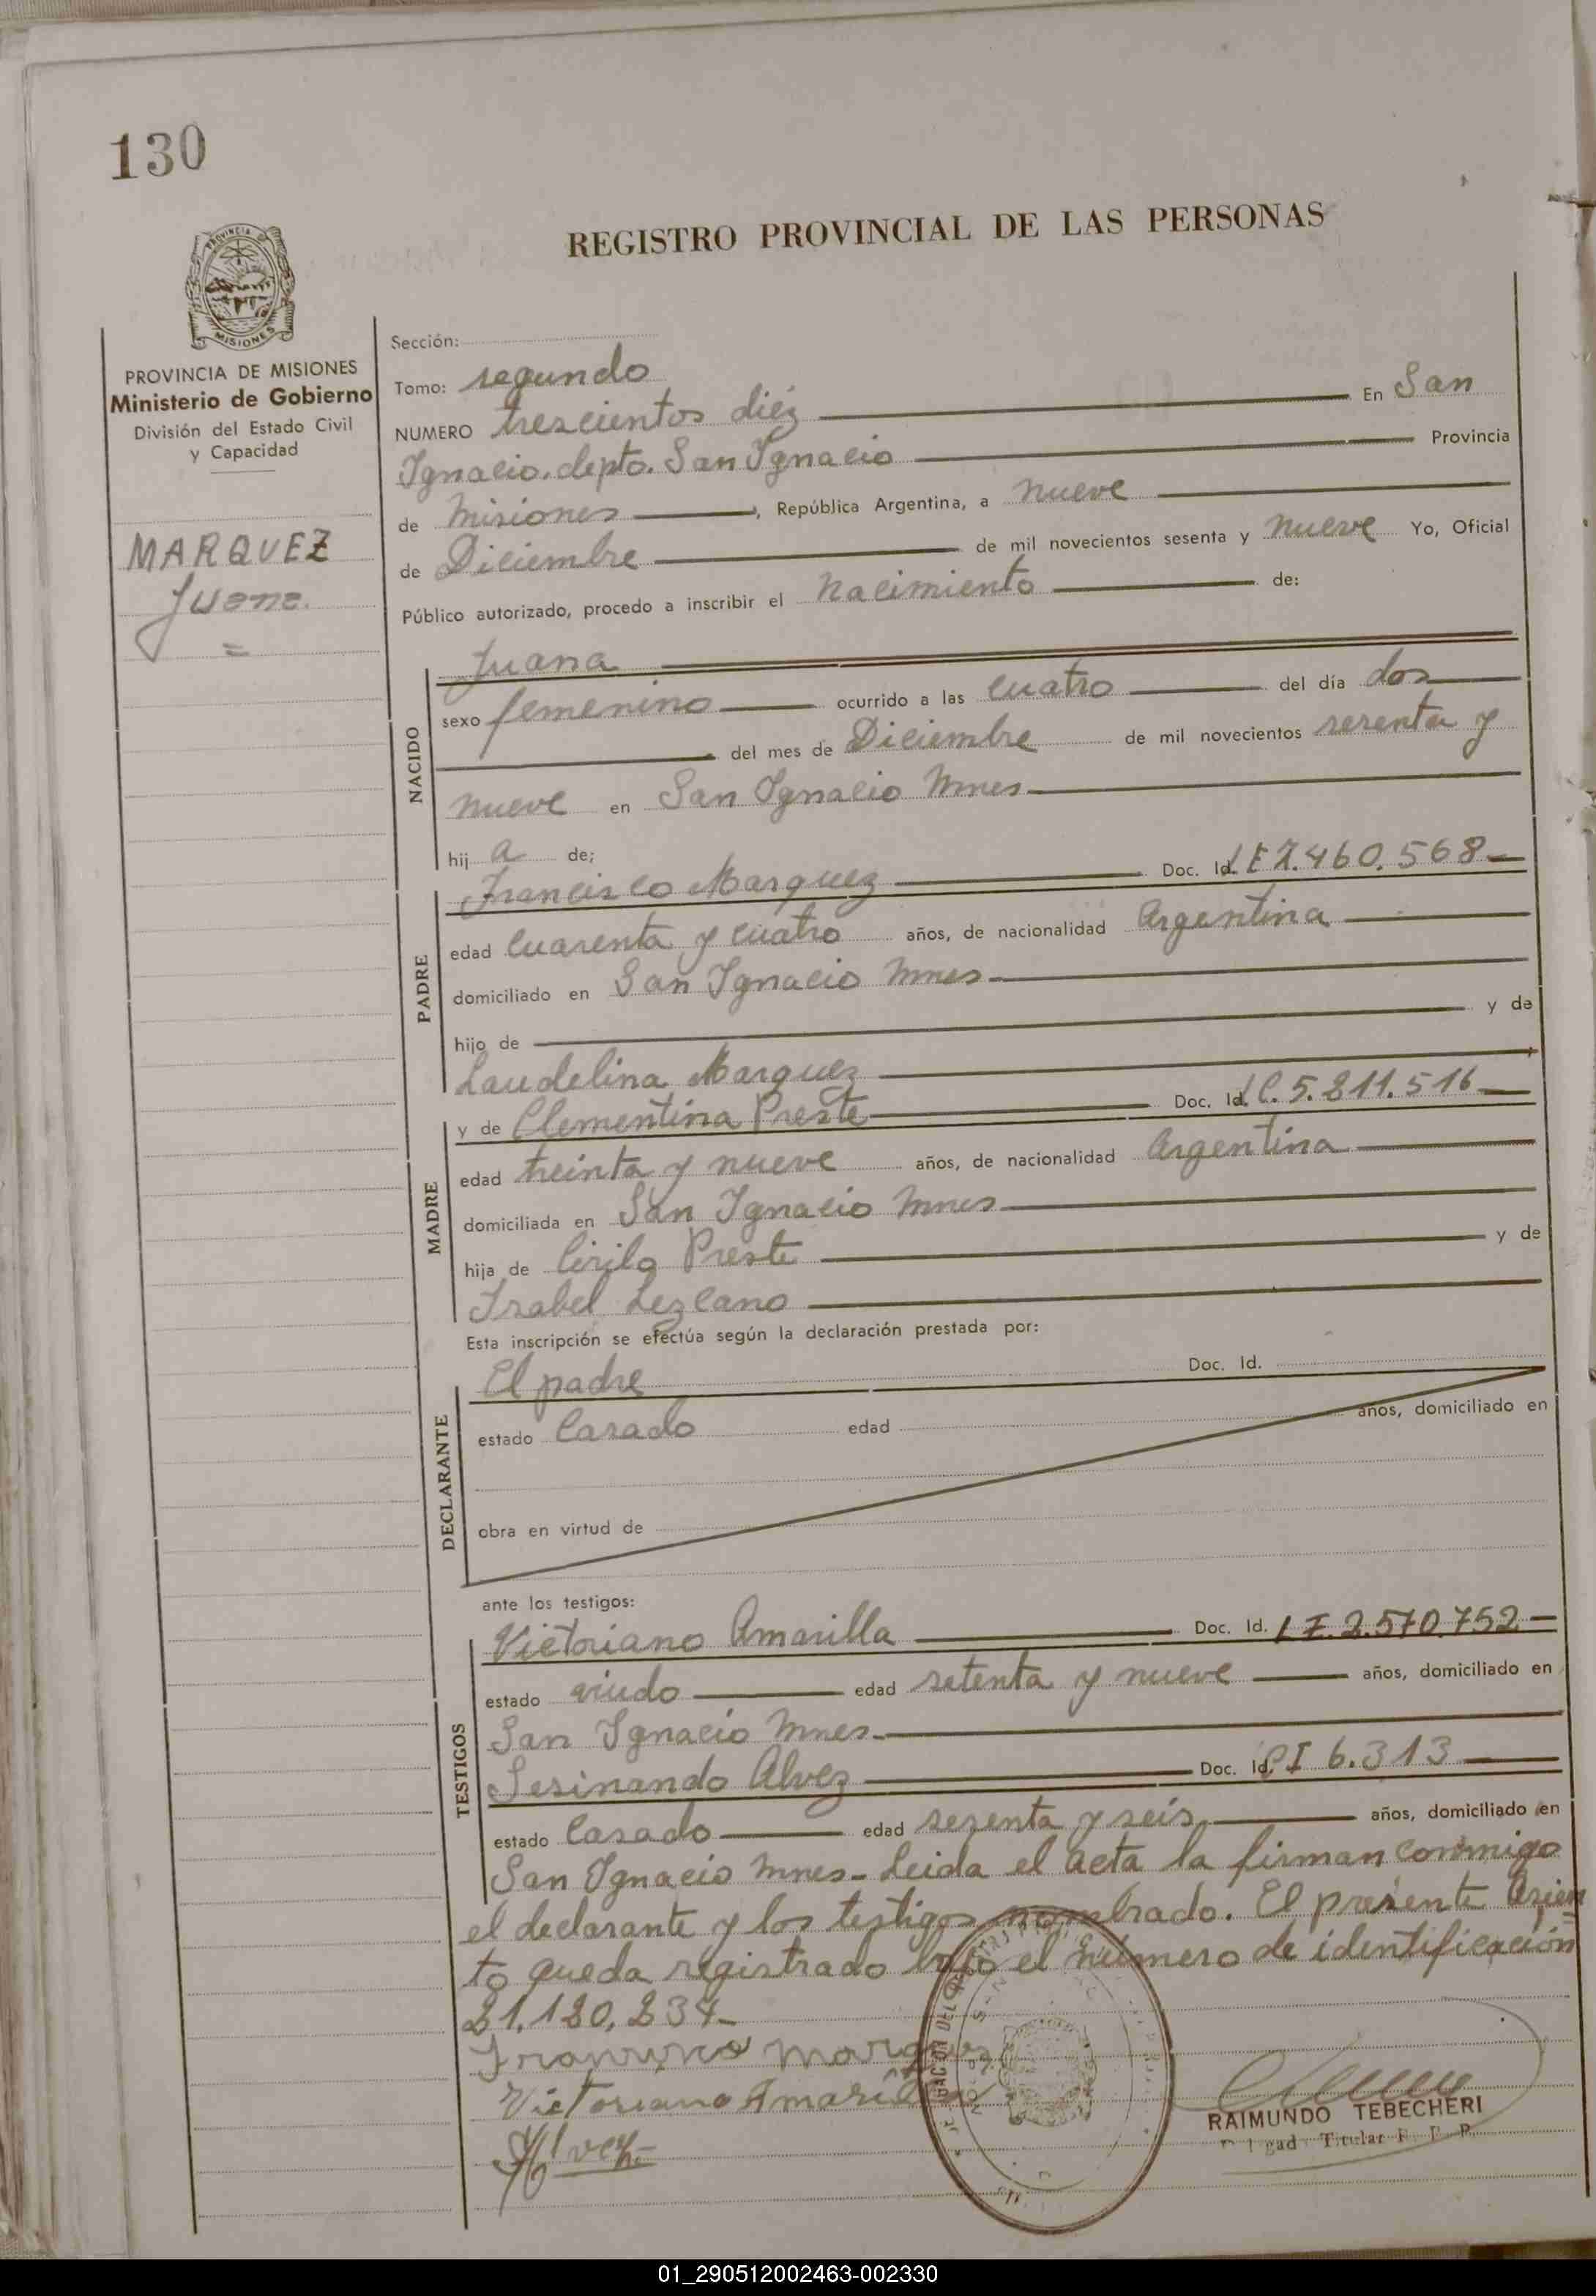 130
REGISTRO PROVINCIAL DE LAS PERSONAS
PROVINCIA DE
MISIONES
PROVINCIA DE MISIONES
Ministerio de Gobierno
División del Estado Civil
y Capacidad
MARQUEZ
Juana
=
Sección:
Tomo: segundo
NUMERO trescientos diéz En San
Ignacio. depto. San Ignacio Provincia
de Misiones, República Argentina, a nueve
de Diciembre de mil novecientos sesenta y nueve Yo, Oficial
Público autorizado, procedo a inscribir el Nacimiento de:
NACIDO
Juana
sexo femenino ocurrido a las cuatro del día dos
del mes de Diciembre de mil novecientos sesenta y
nueve en San Ignacio Mnes
hij a de;
PADRE
Francisco Marquez Doc. Id. LE 7.460.568
edad cuarenta y cuatro años, de nacionalidad Argentina
domiciliado en San Ignacio Mnes
hijo de y de
Laudelina Marquez
MADRE
y de Clementina Preste Doc. Id. LC. 5.811.516
edad treinta y nueve años, de nacionalidad Argentina
domiciliada en San Ignacio Mnes
hija de Cirilo Preste y de
Isabel Lezcano
Esta inscripción se efectúa según la declaración prestada por:
DECLARANTE
El padre Doc. Id.
estado Casado edad años, domiciliado en
obra en virtud de
ante los testigos:
TESTIGOS
Victoriano Amarilla Doc. Id. LE. 2.570.752
estado viudo edad setenta y nueve años, domiciliado en
San Ignacio Mnes
Sesinando Alvez Doc. Id. CI 6.313
estado Casado edad sesenta y seis años, domiciliado en
San Ignacio Mnes - Leida el acta la firman conmigo
el declarante y los testigos nombrado. El presente Asien
to queda registrado bajo el número de identificación
21.180.234
Marquez
Victoriano Amarilla
Alvez
RAIMUNDO TEBECHERI
Titular
01_290512002463-002330